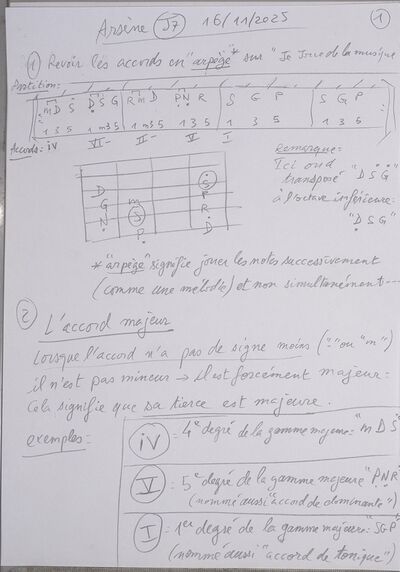 Arsène J7 16/11/2025 1
1 Revoir les accords en "arpège"* sur "Je Joue de la musique
Partition:
m D S D S G R m D P N R S G P S G P
1 3 5 1 m3 5 1 m3 5 1 3 5 1 3 5 1 3 5
Accords: iV VI- II- V I
Remarque:
Ici on a
transposé "D S G"
à l'octave inférieure:
"D S G"
D S
G m P
N S R
P D
* "arpège" signifie jouer les notes successivement
(comme une mélodie) et non simultanément---
2 L'accord majeur
Lorsque l'accord n'a pas de signe moins ("-" ou "m")
il n'est pas mineur → il est forcément majeur:
Cela signifie que sa tierce est majeure.
exemples:
iV = 4e degré de la gamme majeure: "m D S"
V = 5e degré de la gamme majeure "P N R"
(nommé aussi "accord de dominante")
I = 1er degré de la gamme majeure: "S G P"
(nommé aussi "accord de tonique")